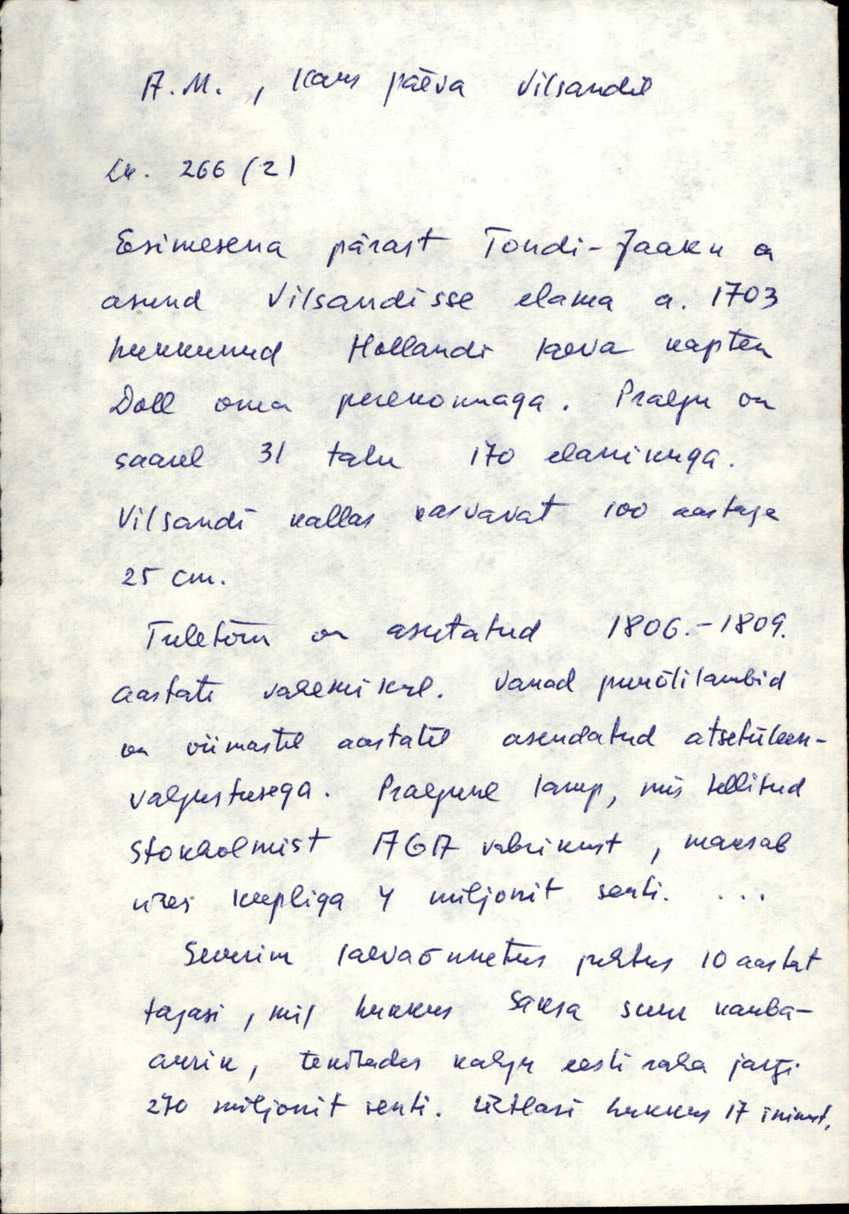 A.M., Kaks päeva Vilsandil
Lk. 266 (2)
Esimesena pärast Tondi-Jaaku on
asund Vilsandisse elama a. 1703
hukkunud Hollandi laeva kapten
Doll oma perekonnaga. Praegu on
saarel 31 talu 170 elanikuga.
Vilsandi kallas kasvavat 100 aastaga
25 cm.
Tuletorn on asutatud 1806.-1809.
aastate vahemikul. Vanad puuõlilambid
on viimastel aastatel asendatud atsetüleen-
valgustusega. Praegune lamp, mis tellitud
Stokholmist AGA vabrikust, maksab
ühes kupliga 4 miljonit senti. ...
Suurim laevaõnnetus juhtus 10 aastat
tagasi, mil hukkus Saksa suur kauba-
aurik, tekitades kahju eesti raha järgi
270 miljonit senti. Ühtlasi hukkus 17 inimest,